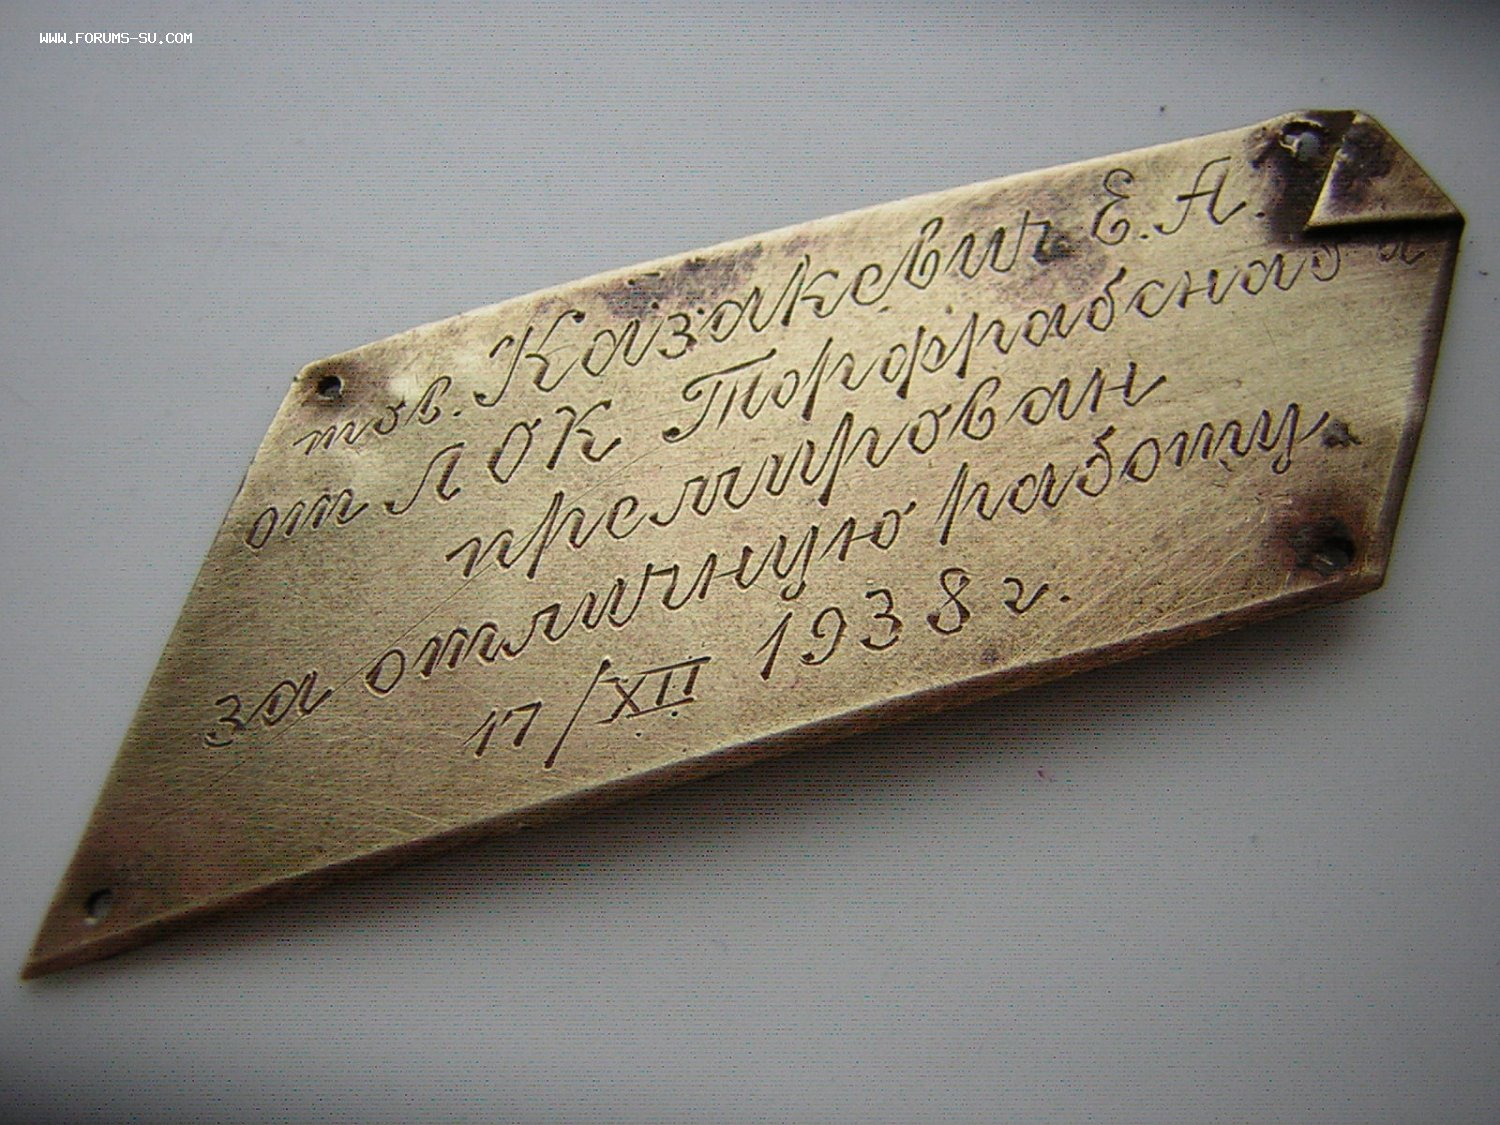 WWW.FORUMS-SU.COM
тов. Казакевич Е. А.
от ЛОК Торфрабснаба
премирован
за отличную работу.
17/XII 1938 г.